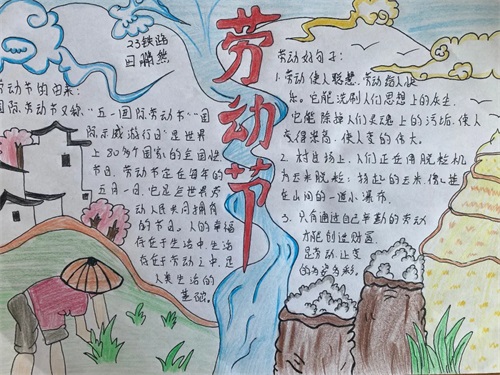 23铁路
田
劳动节
劳动节的由来:
国际劳动节又称“五一国际劳动节”“国
际示威游行日”是世界
上80多个国家的全国性
节日。劳动节定在每年的
五月一日,它是全世界劳
动人民共同拥有
的节日。人的幸福
存在于生活中,生活
存在于劳动之中,是
人类生活的
基础。
劳动好句子:
1.劳动使人聪慧,劳动给人快
乐。它能洗刷人们思想上的灰尘,
它能除掉人们灵魂上的污垢,使人
变得崇高,使人变的伟大。
2.村庄场上,人们正在用脱粒机
为玉米脱粒,扬起的玉米,像挂
在山间的一道小瀑布。
3.只有通过自己辛勤的劳动
才能创造财富,
是劳动,让变
的多姿多彩。